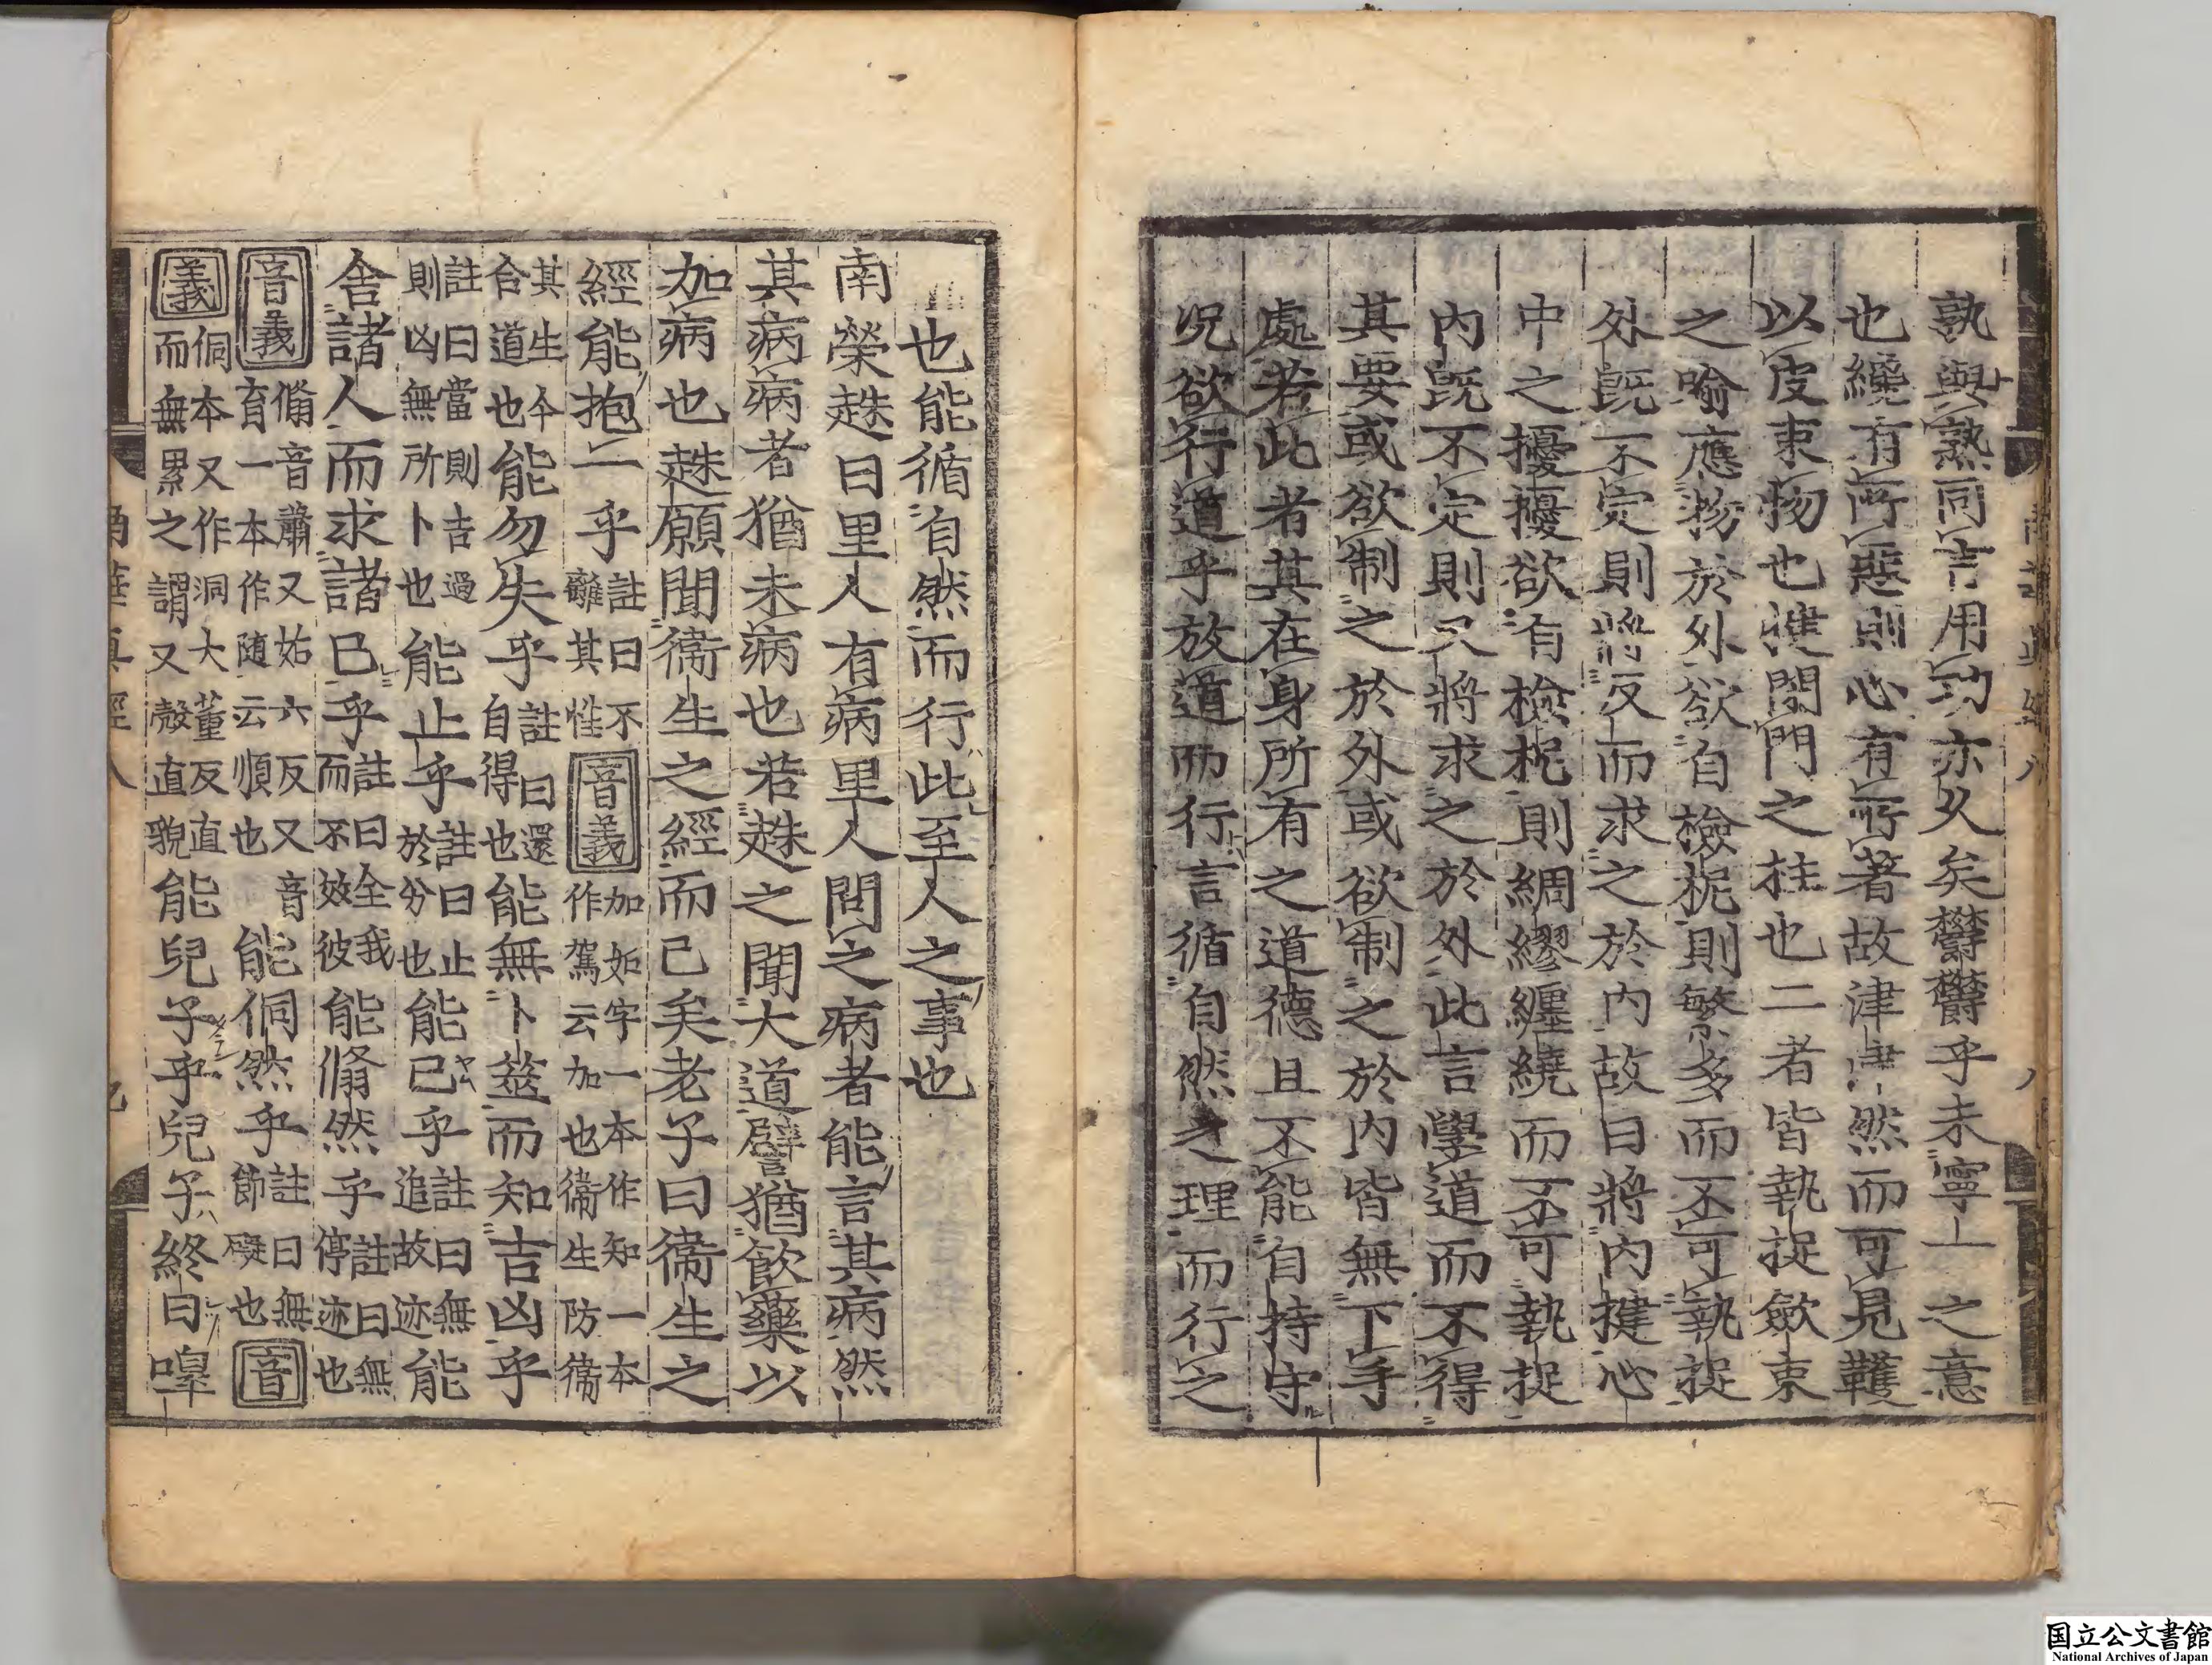 孰與熟同言用功亦久矣欝欝乎未寧止之意
也纔有所惡則心有所著故津津然而可見韄
以皮束物也揵閉門之拄也二者皆執捉斂束
之喻應物於外欲自檢柅則繁多而不可執捉
外既不定則將反而求之於內故曰將內揵心
中之擾擾欲自檢柅則綢繆纏繞而不可執捉
內既不定則又將求之於外此言學道而不得
其要或欲制之於外或欲制之於內皆無下手
處若此者其在身所有之道德且不能自持守
况欲行道乎放道而行言循自然之理而行之
也能循自然而行此至人之事也
南榮趎曰里人有病里人問之病者能言其病然
其病病者猶未病也若趎之聞大道譬猶飲藥以
加病也趎願聞衞生之經而已矣老子曰衞生之
經能抱一乎註曰不離其性音義加如字一本作知一本作駕云加也衞生防衞
其生令合道也能勿失乎註曰還自得也能無卜筮而知吉凶乎
註曰當則吉過則凶無所卜也能止乎註曰止於分也能已乎註曰無追故迹能
舍諸人而求諸已乎註曰全我而不效彼能翛然乎註曰無停迹也
音義翛音蕭又始六反又音育一本作随云順也能侗然乎註曰無節礙也音
義侗本又作洞大董反直而無累之謂又慤直貌能兒子乎兒子終日嘷
国立公文書館
National Archives of Japan